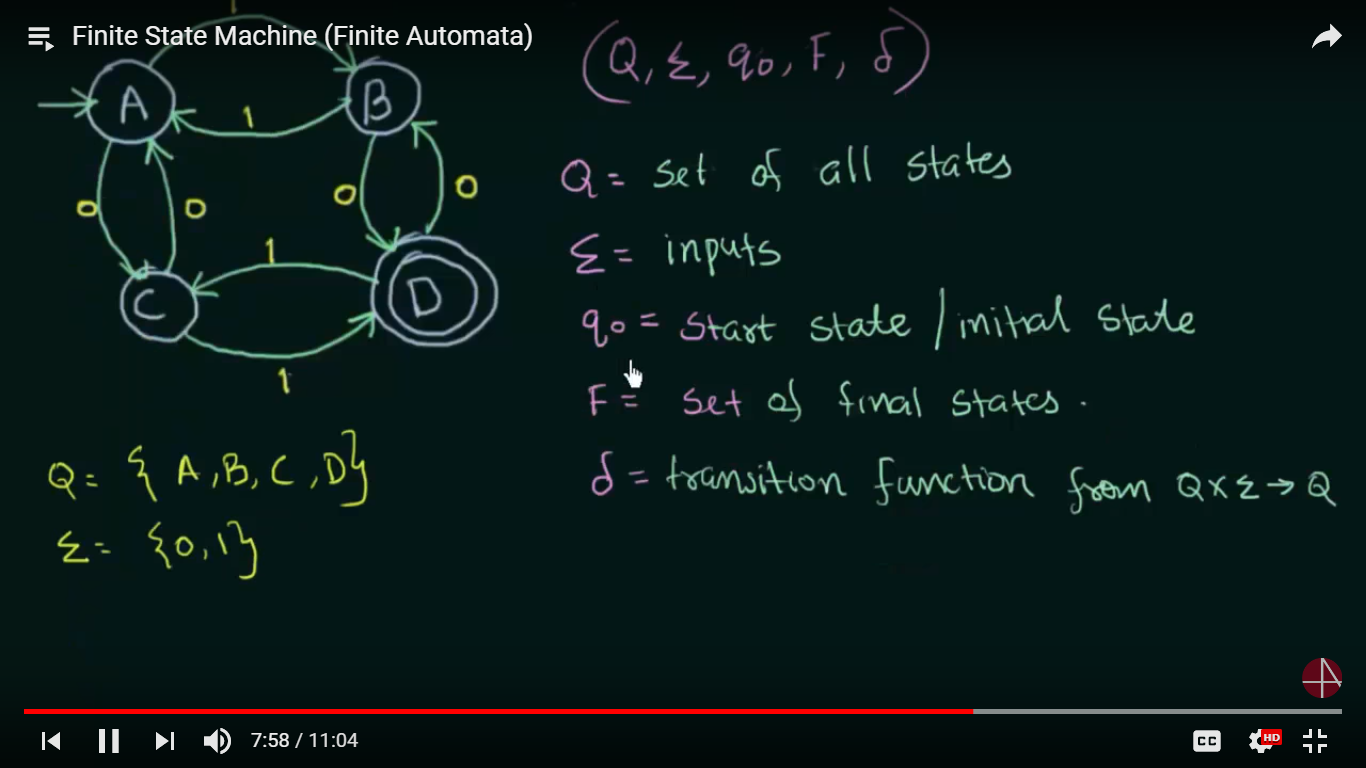 Finite State Machine (Finite Automata)
1
A
B
1
0
0
0
0
1
C
D
1
(Q, Σ, q0, F, δ)
Q = set of all states
Σ = inputs
q0 = start state / initial state
F = set of final states.
δ = transition function from Q×Σ→Q
Q = {A, B, C, D}
Σ = {0, 1}
7:58 / 11:04
CC
HD